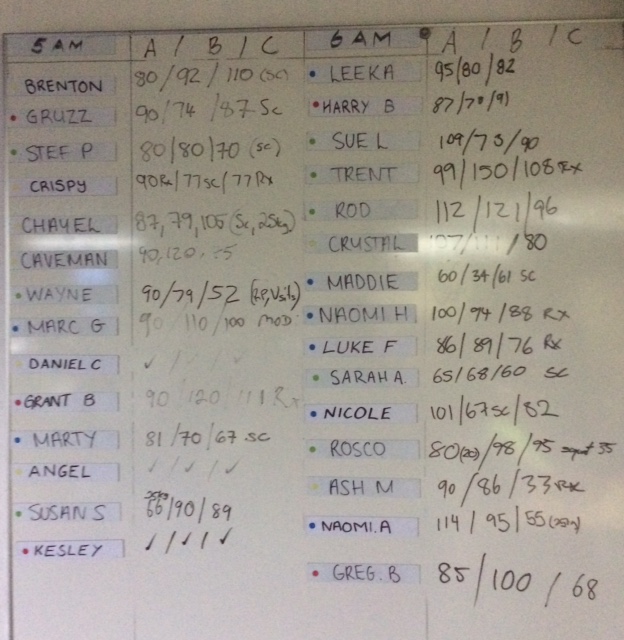 5 AM A / B / C
BRENTON 80/92/110 (SC)
GRUZZ 90/74/87 Sc
STEF P 80/80/70 (sc)
CRISPY 90Rx/77sc/77Rx
CHAYEL 87,79,105 (Sc, 25kg)
CAVEMAN 90,120,
WAYNE 90/79/52
MARC G 90/110/100 MOD
DANIEL C ✓ / / ✓
GRANT B 90/120/111 Rx
MARTY 81/70/67 SC
ANGEL ✓/✓/✓
SUSAN S 66/90/89
KESLEY ✓/✓/✓
6 AM A / B / C
LEEKA 95/80/82
HARRY B 87/78/91
SUE L 109/73/90
TRENT 99/150/108 Rx
ROD 112/121/96
CRYSTAL /80
MADDIE 60/34/61 SC
NAOMI H 100/94/88 RX
LUKE F 86/89/76 Rx
SARAH A. 65/68/60 SC
NICOLE 101/67sc/82
ROSCO 80(20)/98/95 35
ASH M 90/86/33 Rx
NAOMI.A 114/95/55
GREG.B 85/100/68